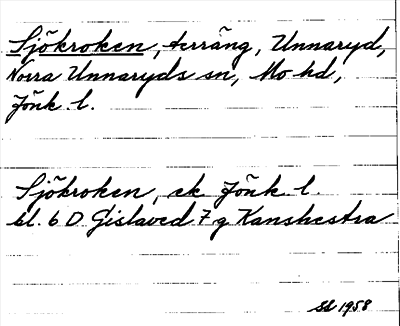 Sjökroken, terräng, Unnaryd,
Norra Unnaryds sn, Mo hd,
Jönk. l.
Sjökroken, ek Jönk l.
bl. 6 D Gislaved 7 g Kanshestra
1958